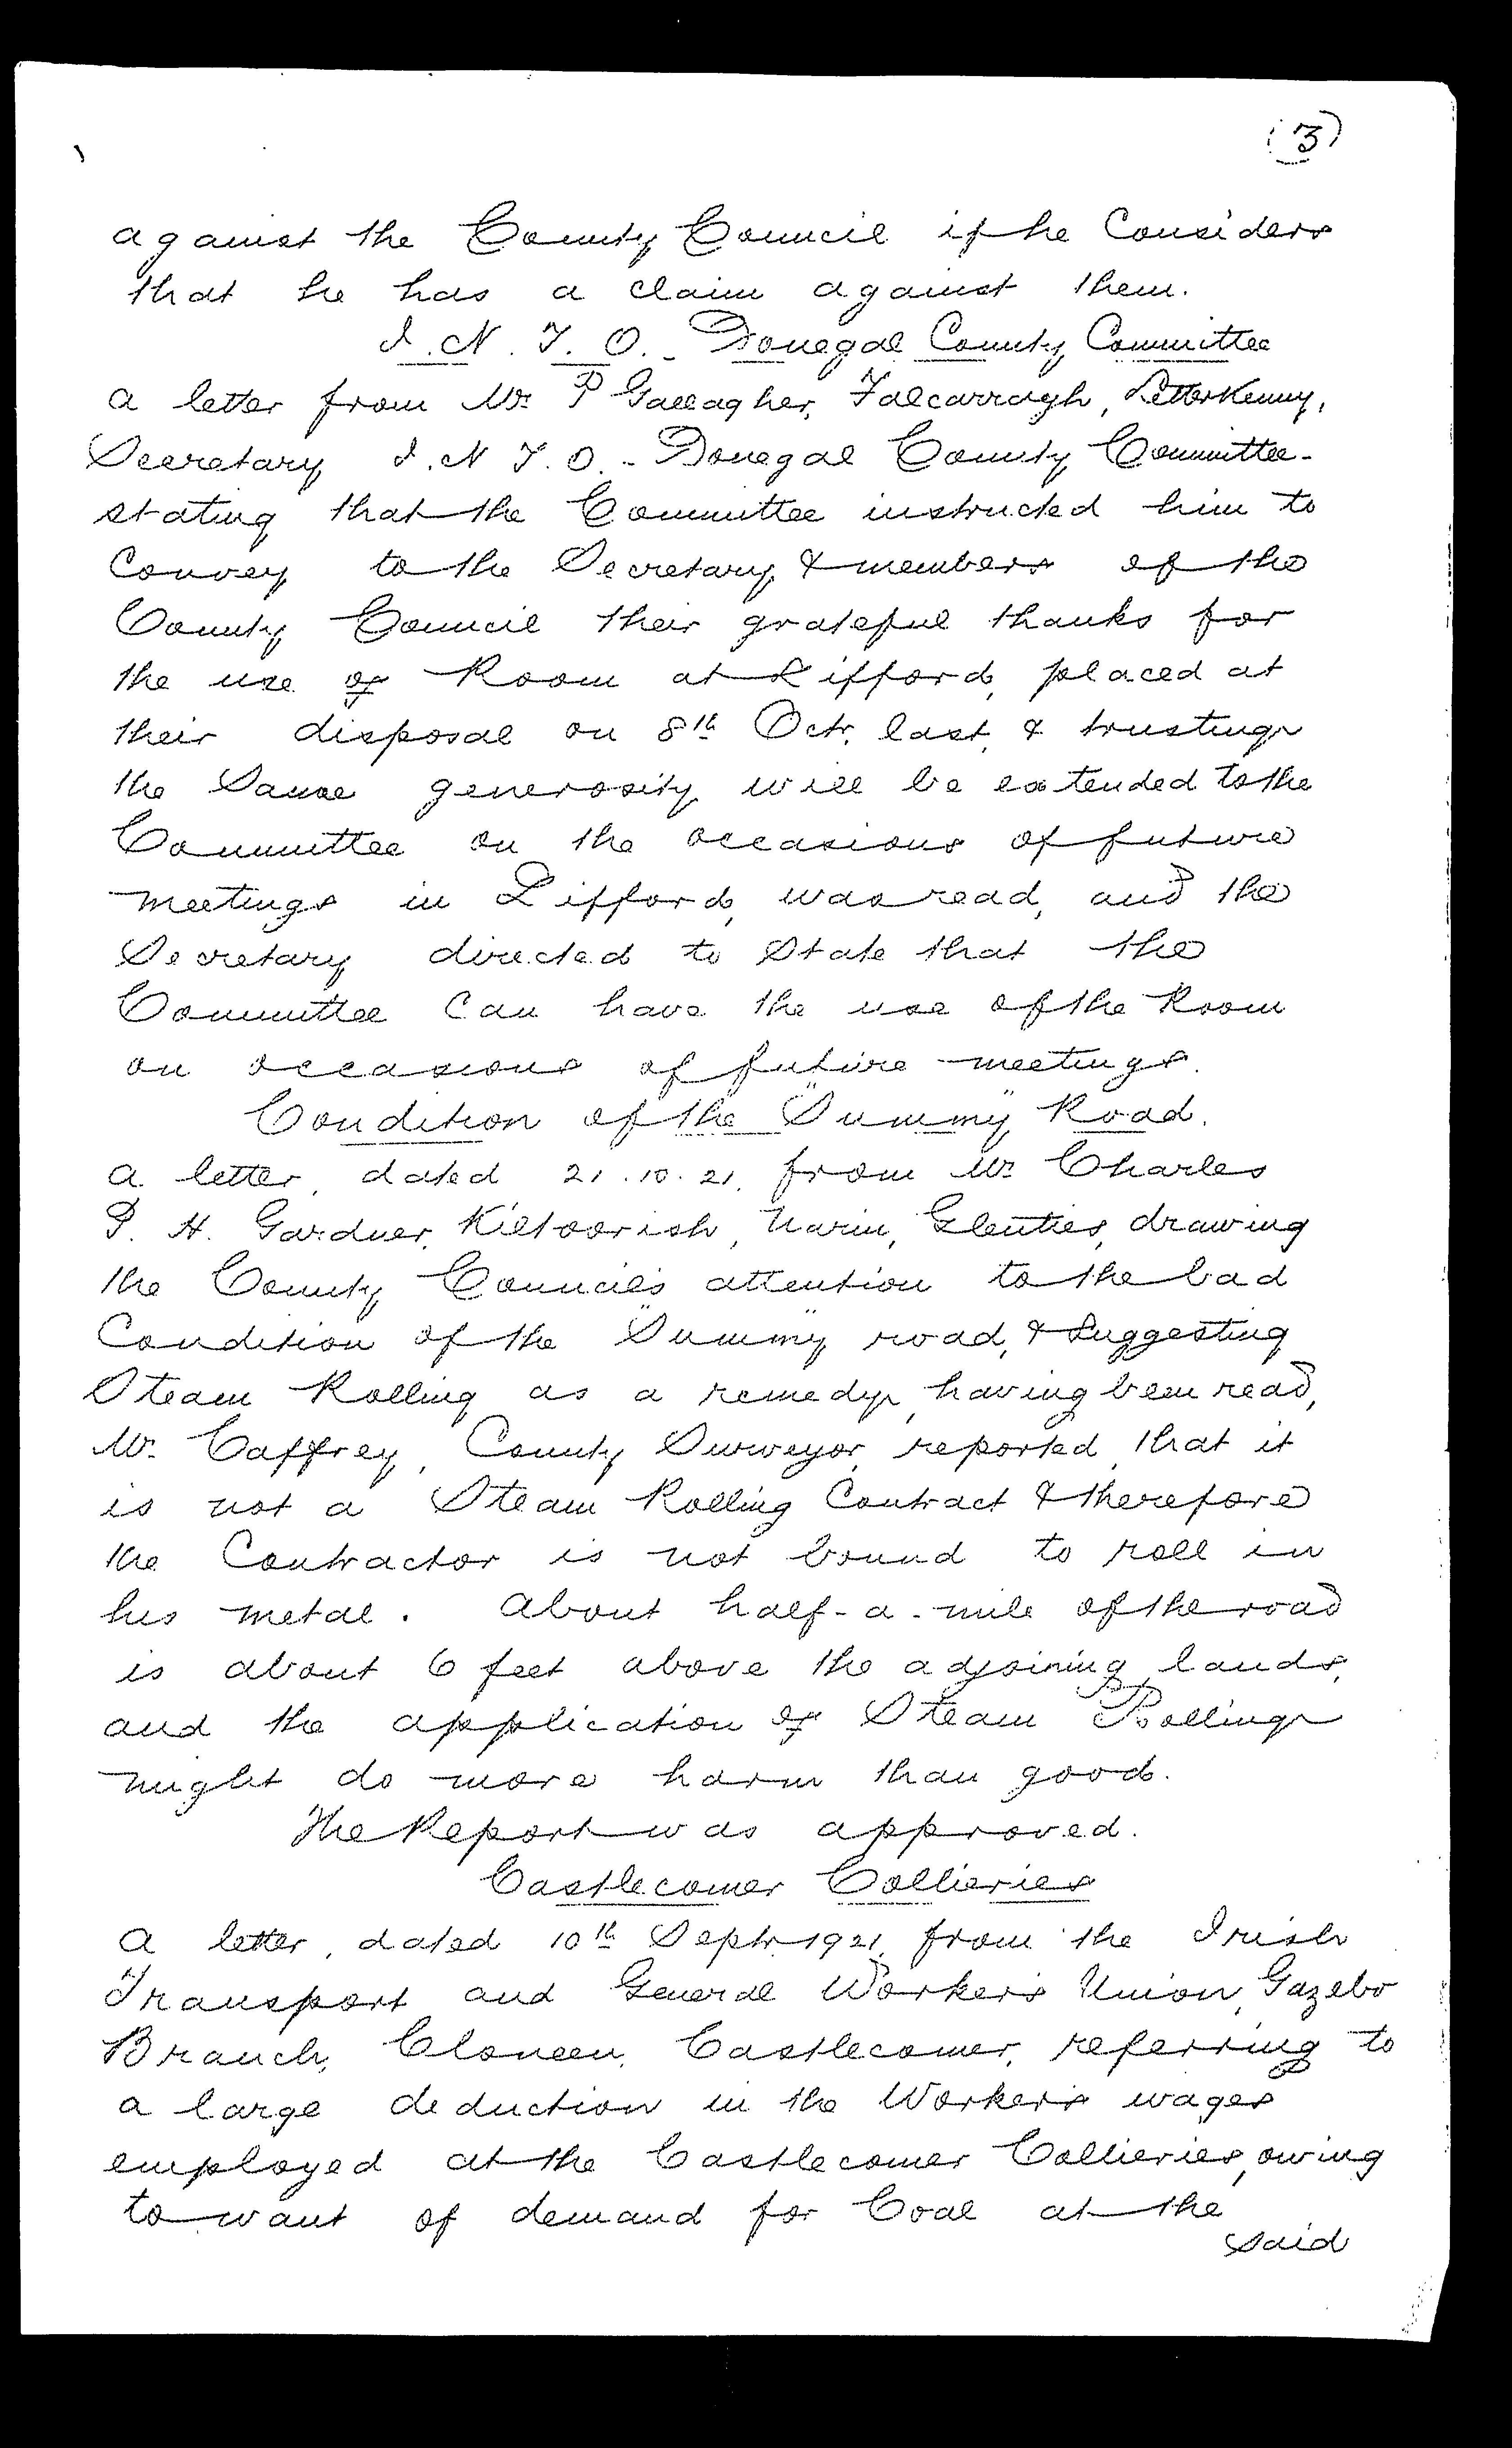 (3)
against the County Council if he Considers
that he has a claim against them.
I. N. T. O. - Donegal County Committee
A letter from Mr P Gallagher, Falcarragh, Letterkenny,
Secretary I. N T. O. - Donegal County Committee -
stating that the Committee instructed him to
Convey to the Secretary & members of the
County Council their grateful thanks for
the use of Room at Lifford, placed at
their disposal on 8th Octr. last, & trusting
the Same generosity will be extended to the
Committee on the occasions of future
meetings in Lifford, was read, and the
Secretary directed to State that the
Committee Can have the use of the Room
on occasions of future meetings.
Condition of the "Dummy" Road.
A letter, dated 21.10.21, from Mr Charles
P. H. Gardner, Kiltoorish, Narin, Glenties, drawing
the County Council's attention to the bad
Condition of the "Dummy" road, & Suggesting
Steam Rolling as a remedy, having been read,
Mr. Caffrey, County Surveyor, reported that it
is not a Steam Rolling Contract & therefore
the Contractor is not bound to roll in
his metal. About half-a-mile of the road
is about 6 feet above the adjoining lands,
and the application of Steam Rolling
might do more harm than good.
The Report was approved.
Castlecomer Collieries
A letter, dated 10th Septr 1921, from the Irish
Transport and General Workers Union, Gazebo
Branch, Cloneen, Castlecomer, referring to
a large deduction in the Workers wages
employed at the Castlecomer Collieries, owing
to want of demand for Coal at the
said